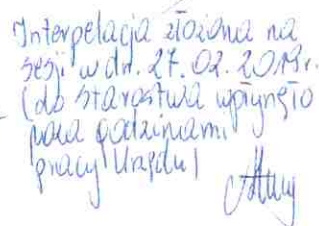 Interpelacja złożona na
sesji w dn. 27.02.2019r.
(do starostwa wpłynęło
poza godzinami
pracy Urzędu)